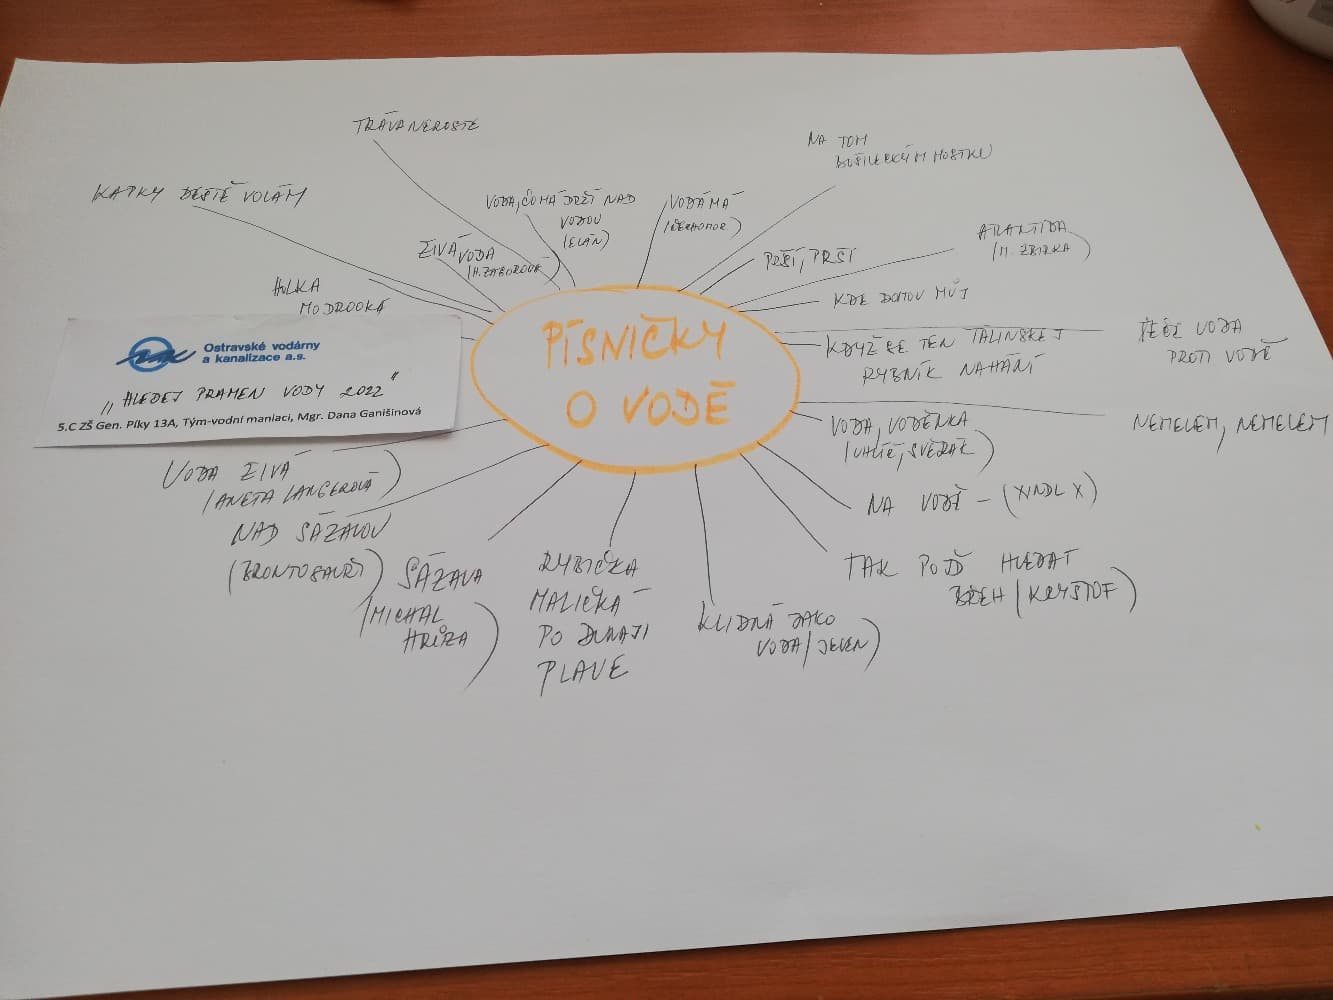 TRÁVA NEROSTE
NA TOM
BOŠILECKÝM MOSTKU
KAPKY DEŠTĚ VOLÁM
VODA, ČO MA DRŽÍ NAD
VODOU
(ELÁN)
VODÁMÁ
(ČECHOMOR)
ŽIVÁ VODA
(H. ZAGOROVÁ)
PRŠÍ, PRŠÍ
ATLANTIDA
(M. ŽBIRKA)
HOLKA
MODROOKÁ
KDE DOMOV MŮJ
PÍSNIČKY
O VODĚ
KDYŽ SE TEN TALINSKEJ
RYBNÍK NAHÁNÍ
ŘEŽE VODA
PROTI VODĚ
Ostravské vodárny
a kanalizace a.s.
"HLEDEJ PRAMEN VODY 2022"
5.C ZŠ Gen. Píky 13A, Tým-vodní maniaci, Mgr. Dana Ganišinová
VODA, VODĚNKA
(UHLÍŘ, SVĚRÁK)
NEMELEM, NEMELEM
VODA ŽIVÁ
(ANETA LANGEROVÁ)
NA VODĚ - (XINDL X)
NAD SÁZAVOU
(BRONTOSAUŘI)
SÁZAVA
(MICHAL
HRŮZA)
RYBIČKA
MALIČKÁ
PO DUNAJI
PLAVE
KLIDNÁ JAKO
VODA (JELEN)
TAK POJĎ HLEDAT
BŘEH (KRYŠTOF)